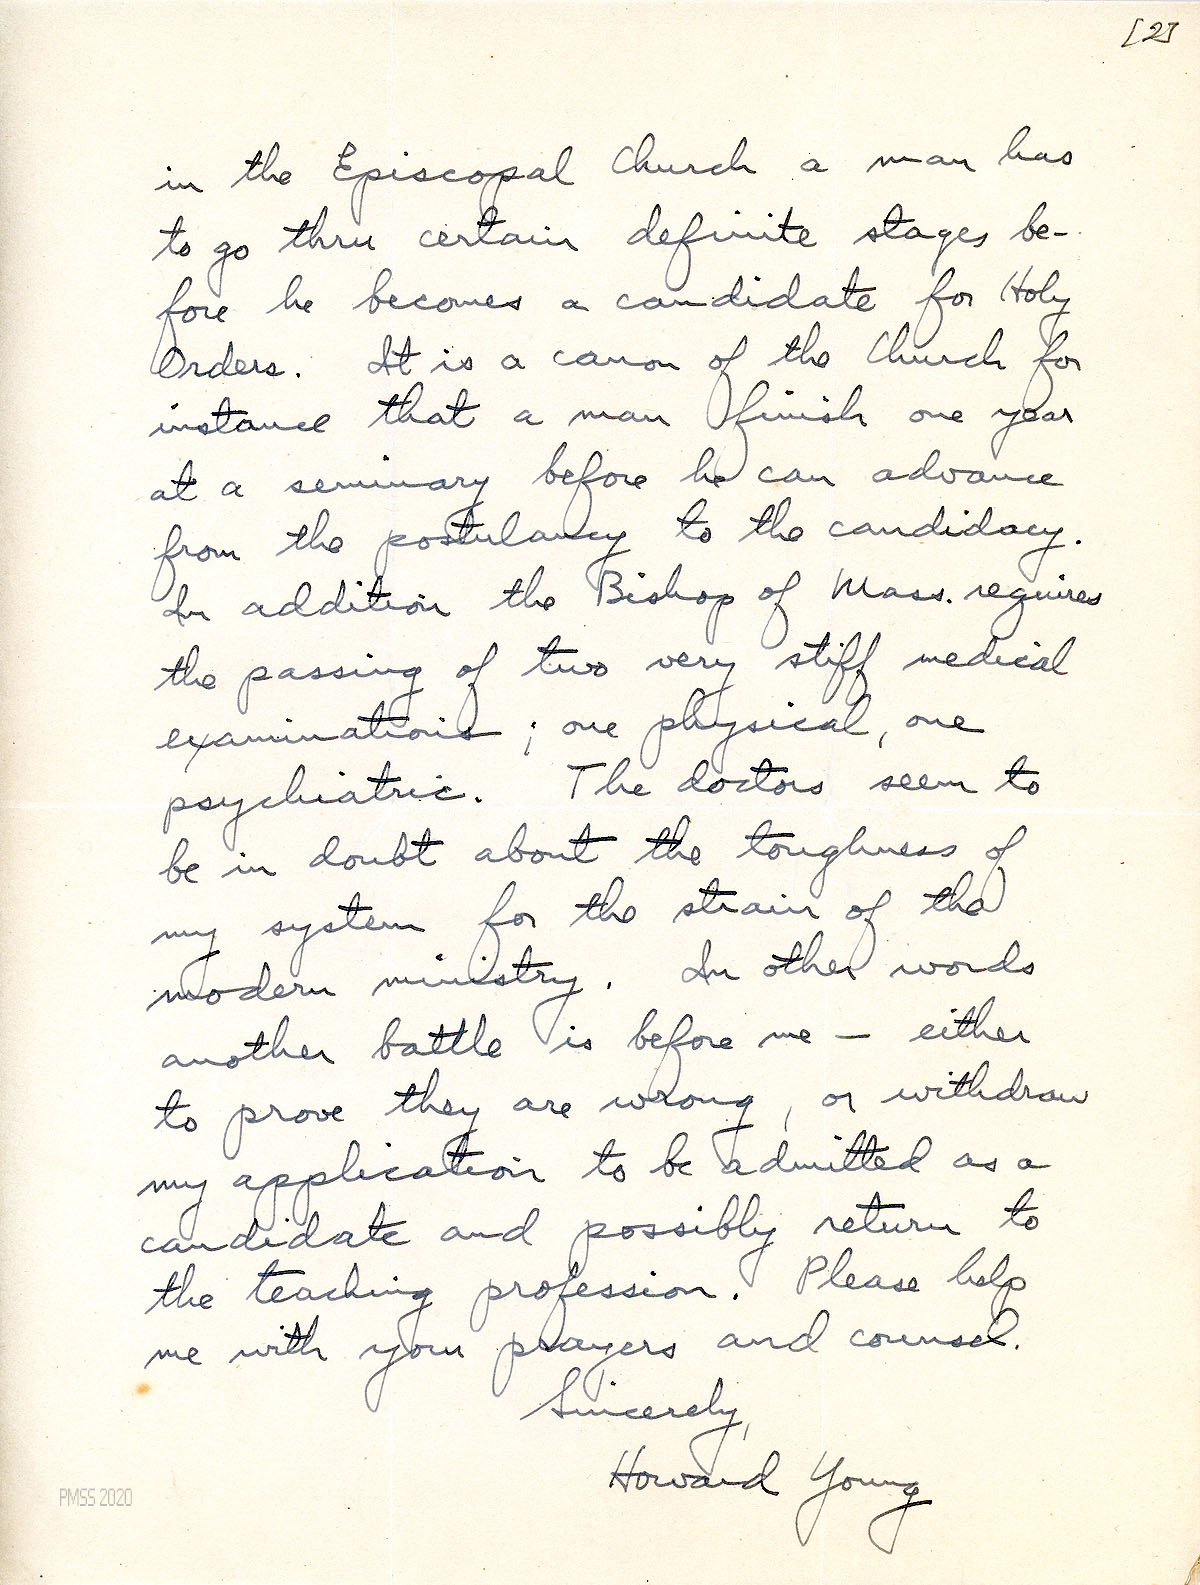 [2]
in the Episcopal Church a man has
to go thru certain definite stages be-
fore he becomes a candidate for Holy
Orders. It is a canon of the Church for
instance that a man finish one year
at a seminary before he can advance
from the postulancy to the candidacy.
In addition the Bishop of Mass. requires
the passing of two very stiff medical
examinations ; one physical, one
psychiatric. The doctors seem to
be in doubt about the toughness of
my system for the strain of the
modern ministry. In other words
another battle is before me — either
to prove they are wrong, or withdraw
my application to be admitted as a
candidate and possibly return to
the teaching profession. Please help
me with your prayers and counsel.
Sincerely,
Howard Young
PMSS 2020